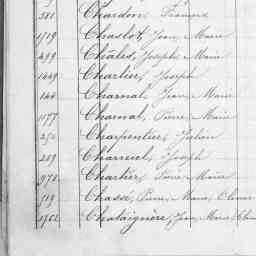 381 Chardon, François
1719 Chaslot, Jean Marie
499 Châles, Joseph Marie
1449 Charlier, Joseph
144 Charnal, Jean Marie
1177 Charnal, Pierre Marie
250 Charpentier, Julien
289 Charreul, Joseph
972 Chartier, Pierre Marie
519 Chassé, Pierre Marie Olivier
1762 Chataignère, Jean Marie